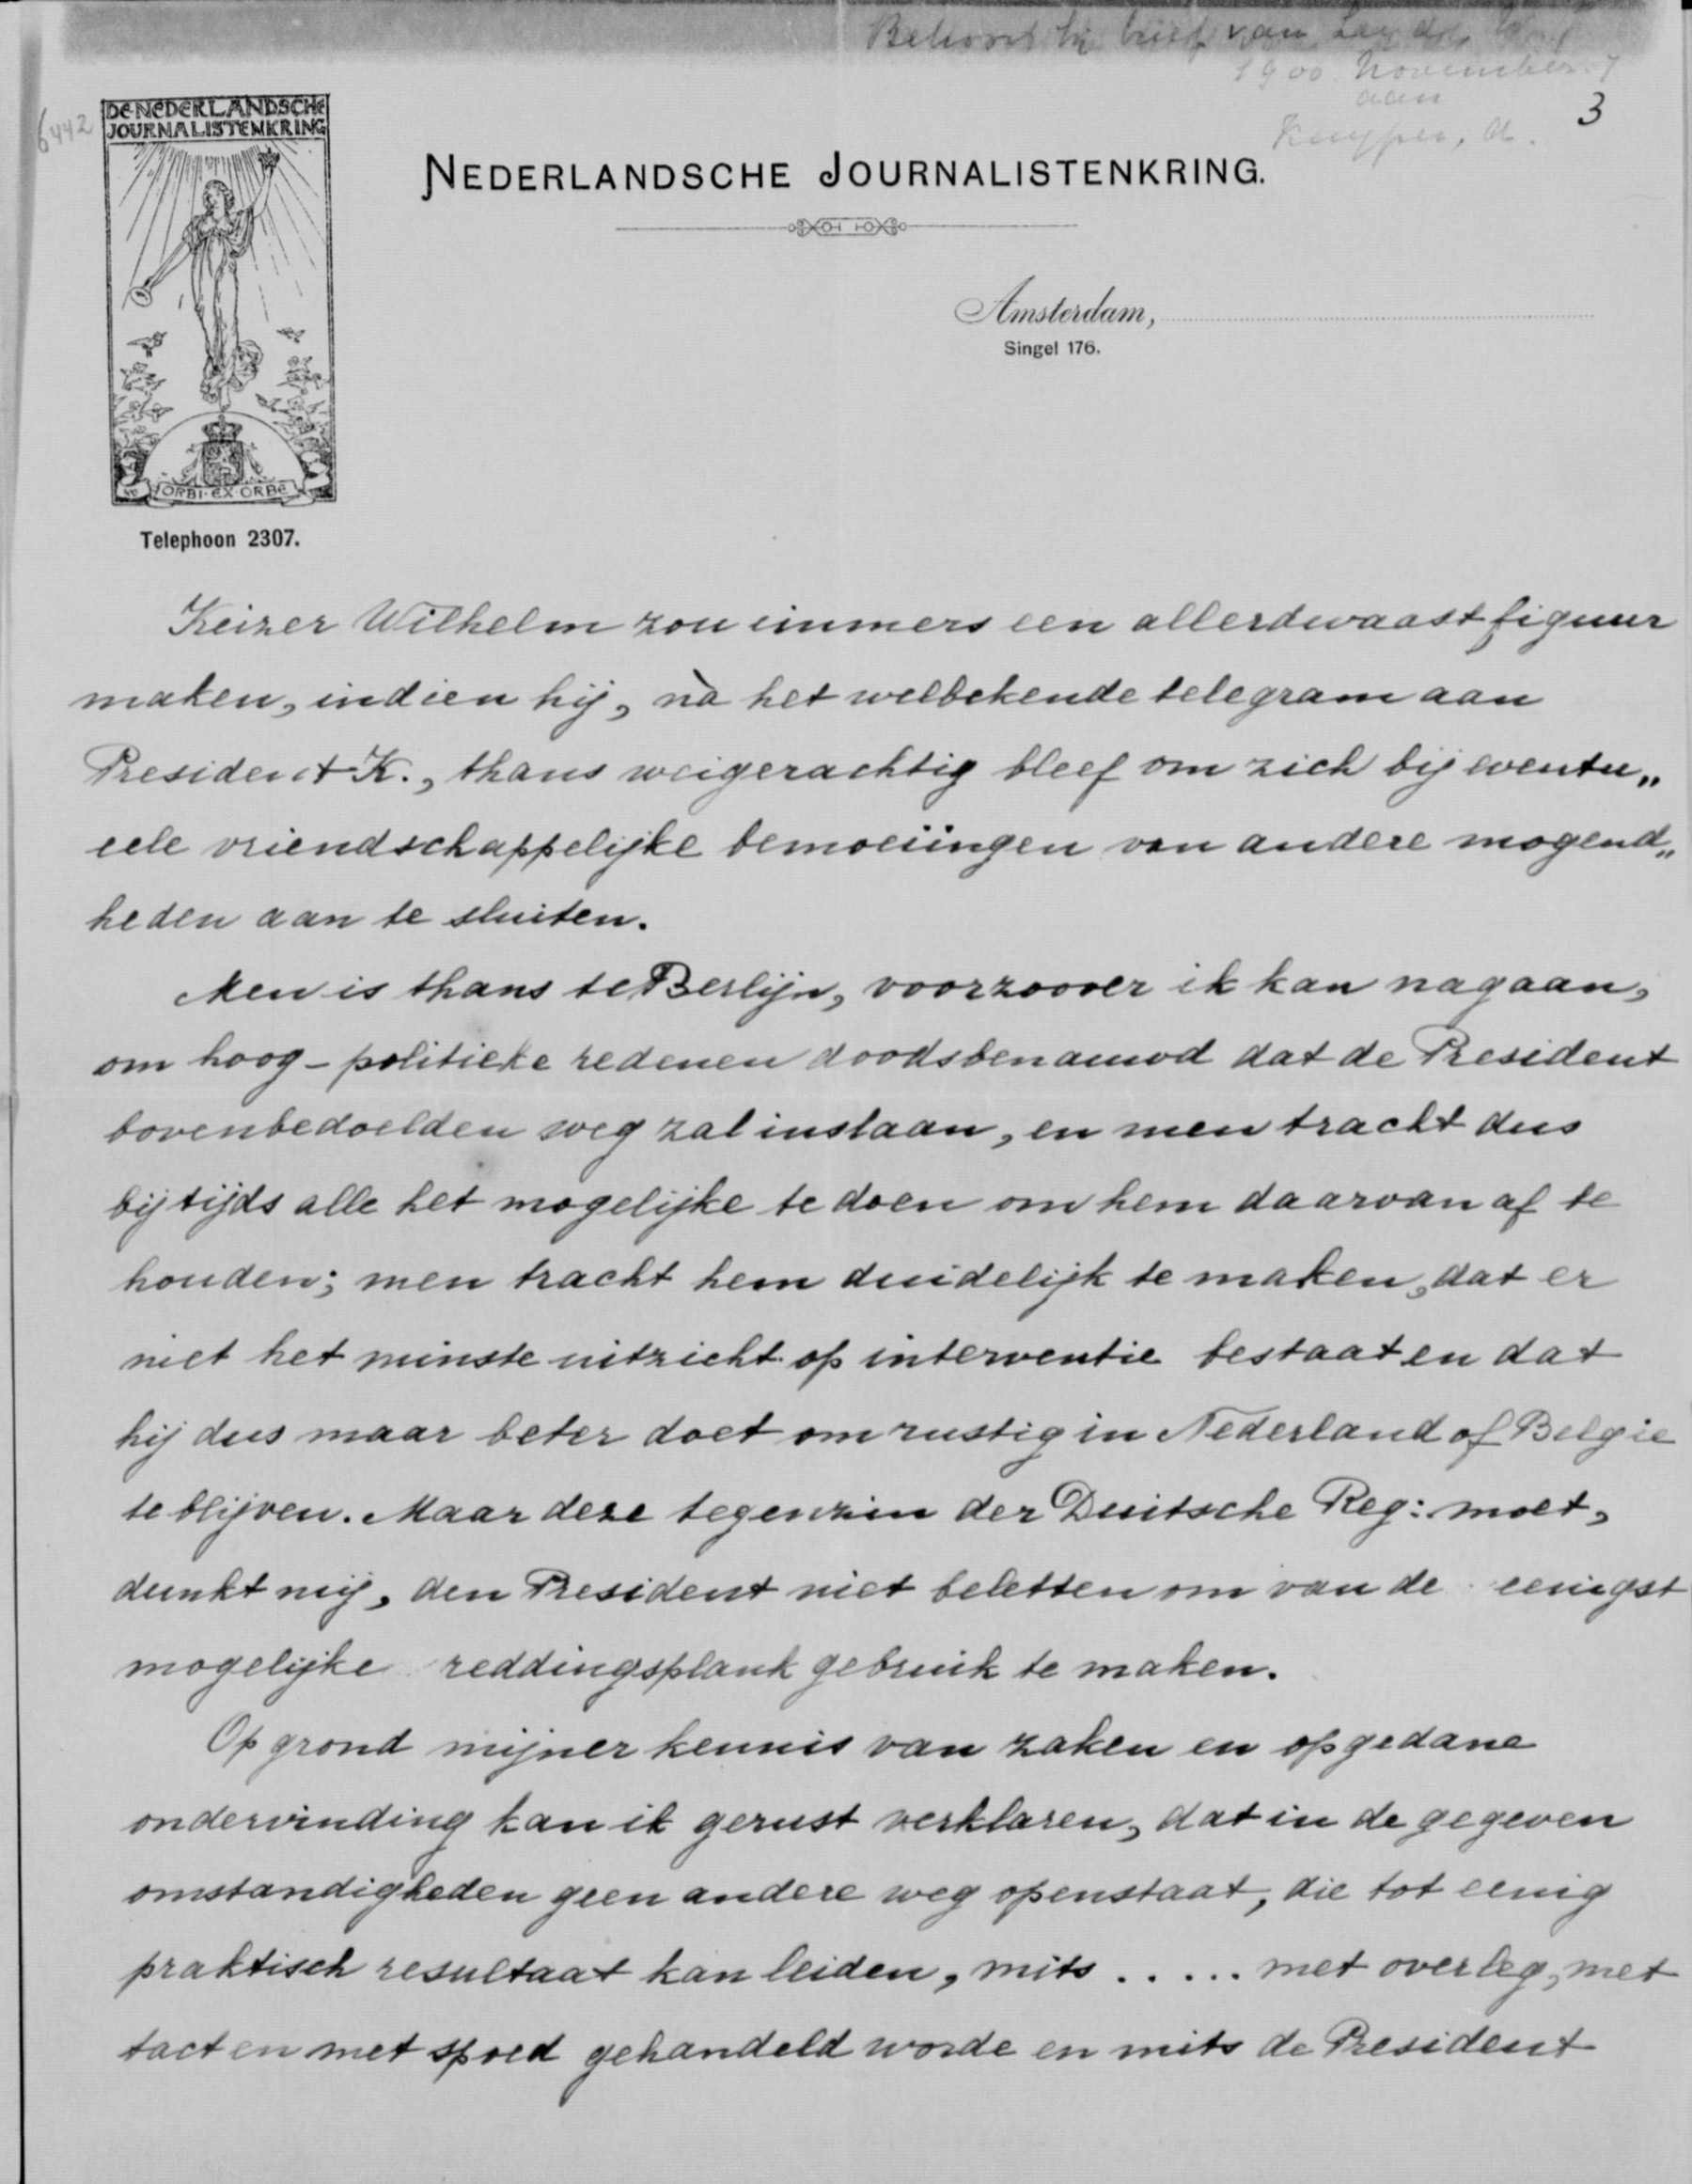 Behoort bij brief van
1900 November 7
aan
Kuyper, A.
3
6442
DE NEDERLANDSCHE
JOURNALISTENKRING
NEDERLANDSCHE JOURNALISTENKRING.
Amsterdam,
Singel 176.
ORBI EX ORBE
Telephoon 2307.
Keizer Wilhelm zou immers een allerdwaast figuur
maken, indien hij, nà het welbekende telegram aan
President K., thans weigerachtig bleef om zich bij eventu„
eele vriendschappelijke bemoeiïngen van andere mogend„
heden aan te sluiten.
Men is thans te Berlijn, voorzoover ik kan nagaan,
om hoog-politieke redenen doodsbenauwd dat de President
bovenbedoelden weg zal inslaan, en men tracht dus
bijtijds alle het mogelijke te doen om hem daarvan af te
houden; men tracht hem duidelijk te maken, dat er
niet het minste uitzicht op interventie bestaat en dat
hij dus maar beter doet om rustig in Nederland of Belgie
te blijven. Maar deze tegenzin der Duitsche Reg: moet,
dunkt mij, den President niet beletten om van de eenigst
mogelijke reddingsplank gebruik te maken.
Op grond mijner kennis van zaken en opgedane
ondervinding kan ik gerust verklaren, dat in de gegeven
omstandigheden geen andere weg openstaat, die tot eenig
praktisch resultaat kan leiden, mits ..... met overleg, met
tact en met spoed gehandeld worde en mits de President